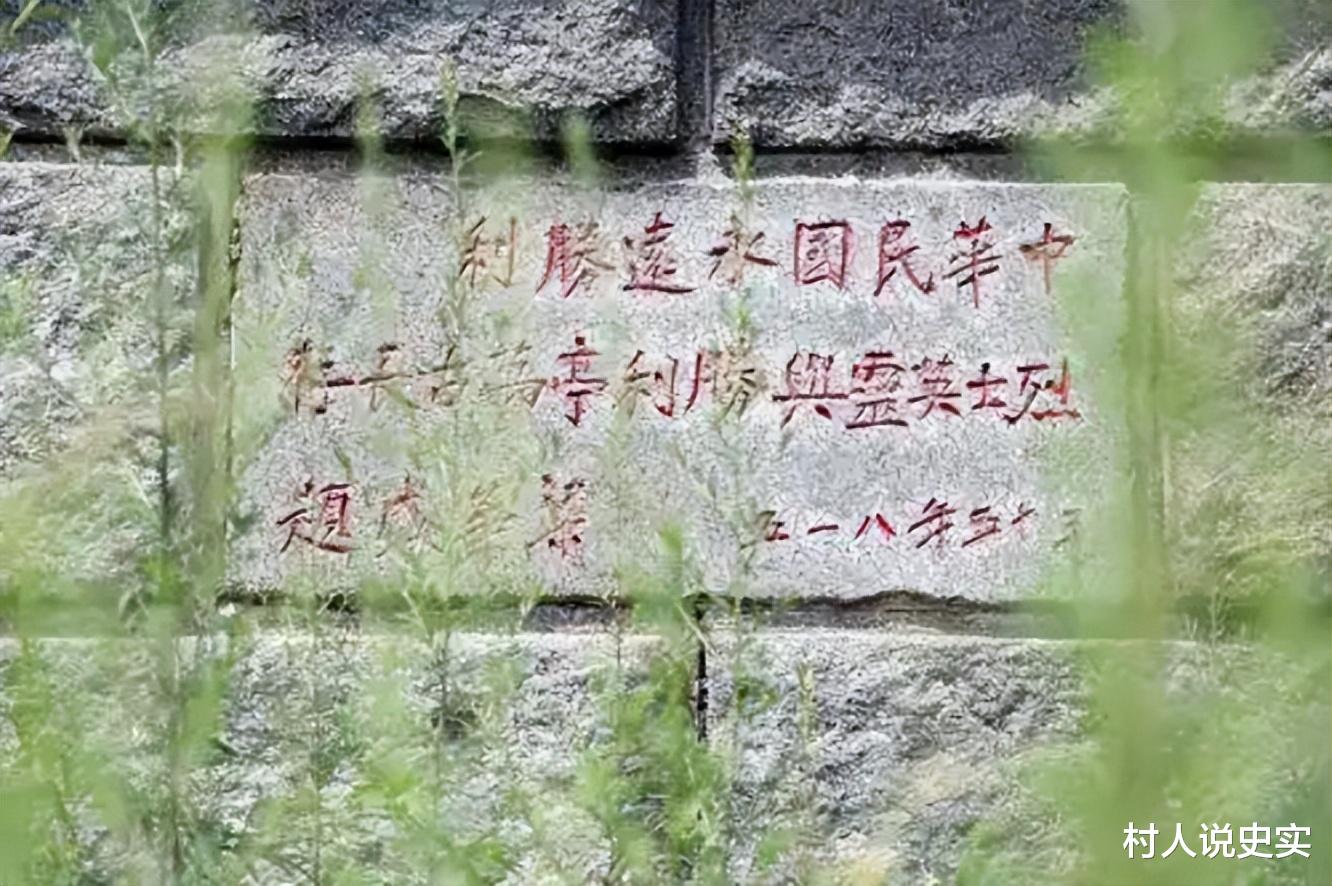 中華民國永遠勝利
烈士英靈與勝利亭萬古長存
三十五年八一五 梁華盛題
村人说史实